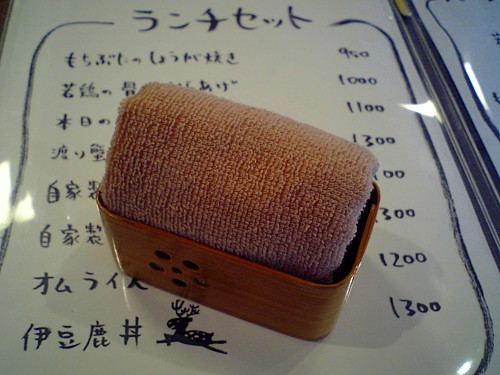 ランチセット
もちぶたのしょうが焼き 950
若鶏の骨 あげ 1000
本日の 1100
渡り蟹 1300
自家製 00
自家製 300
オムライス 1200
伊豆鹿丼 1300